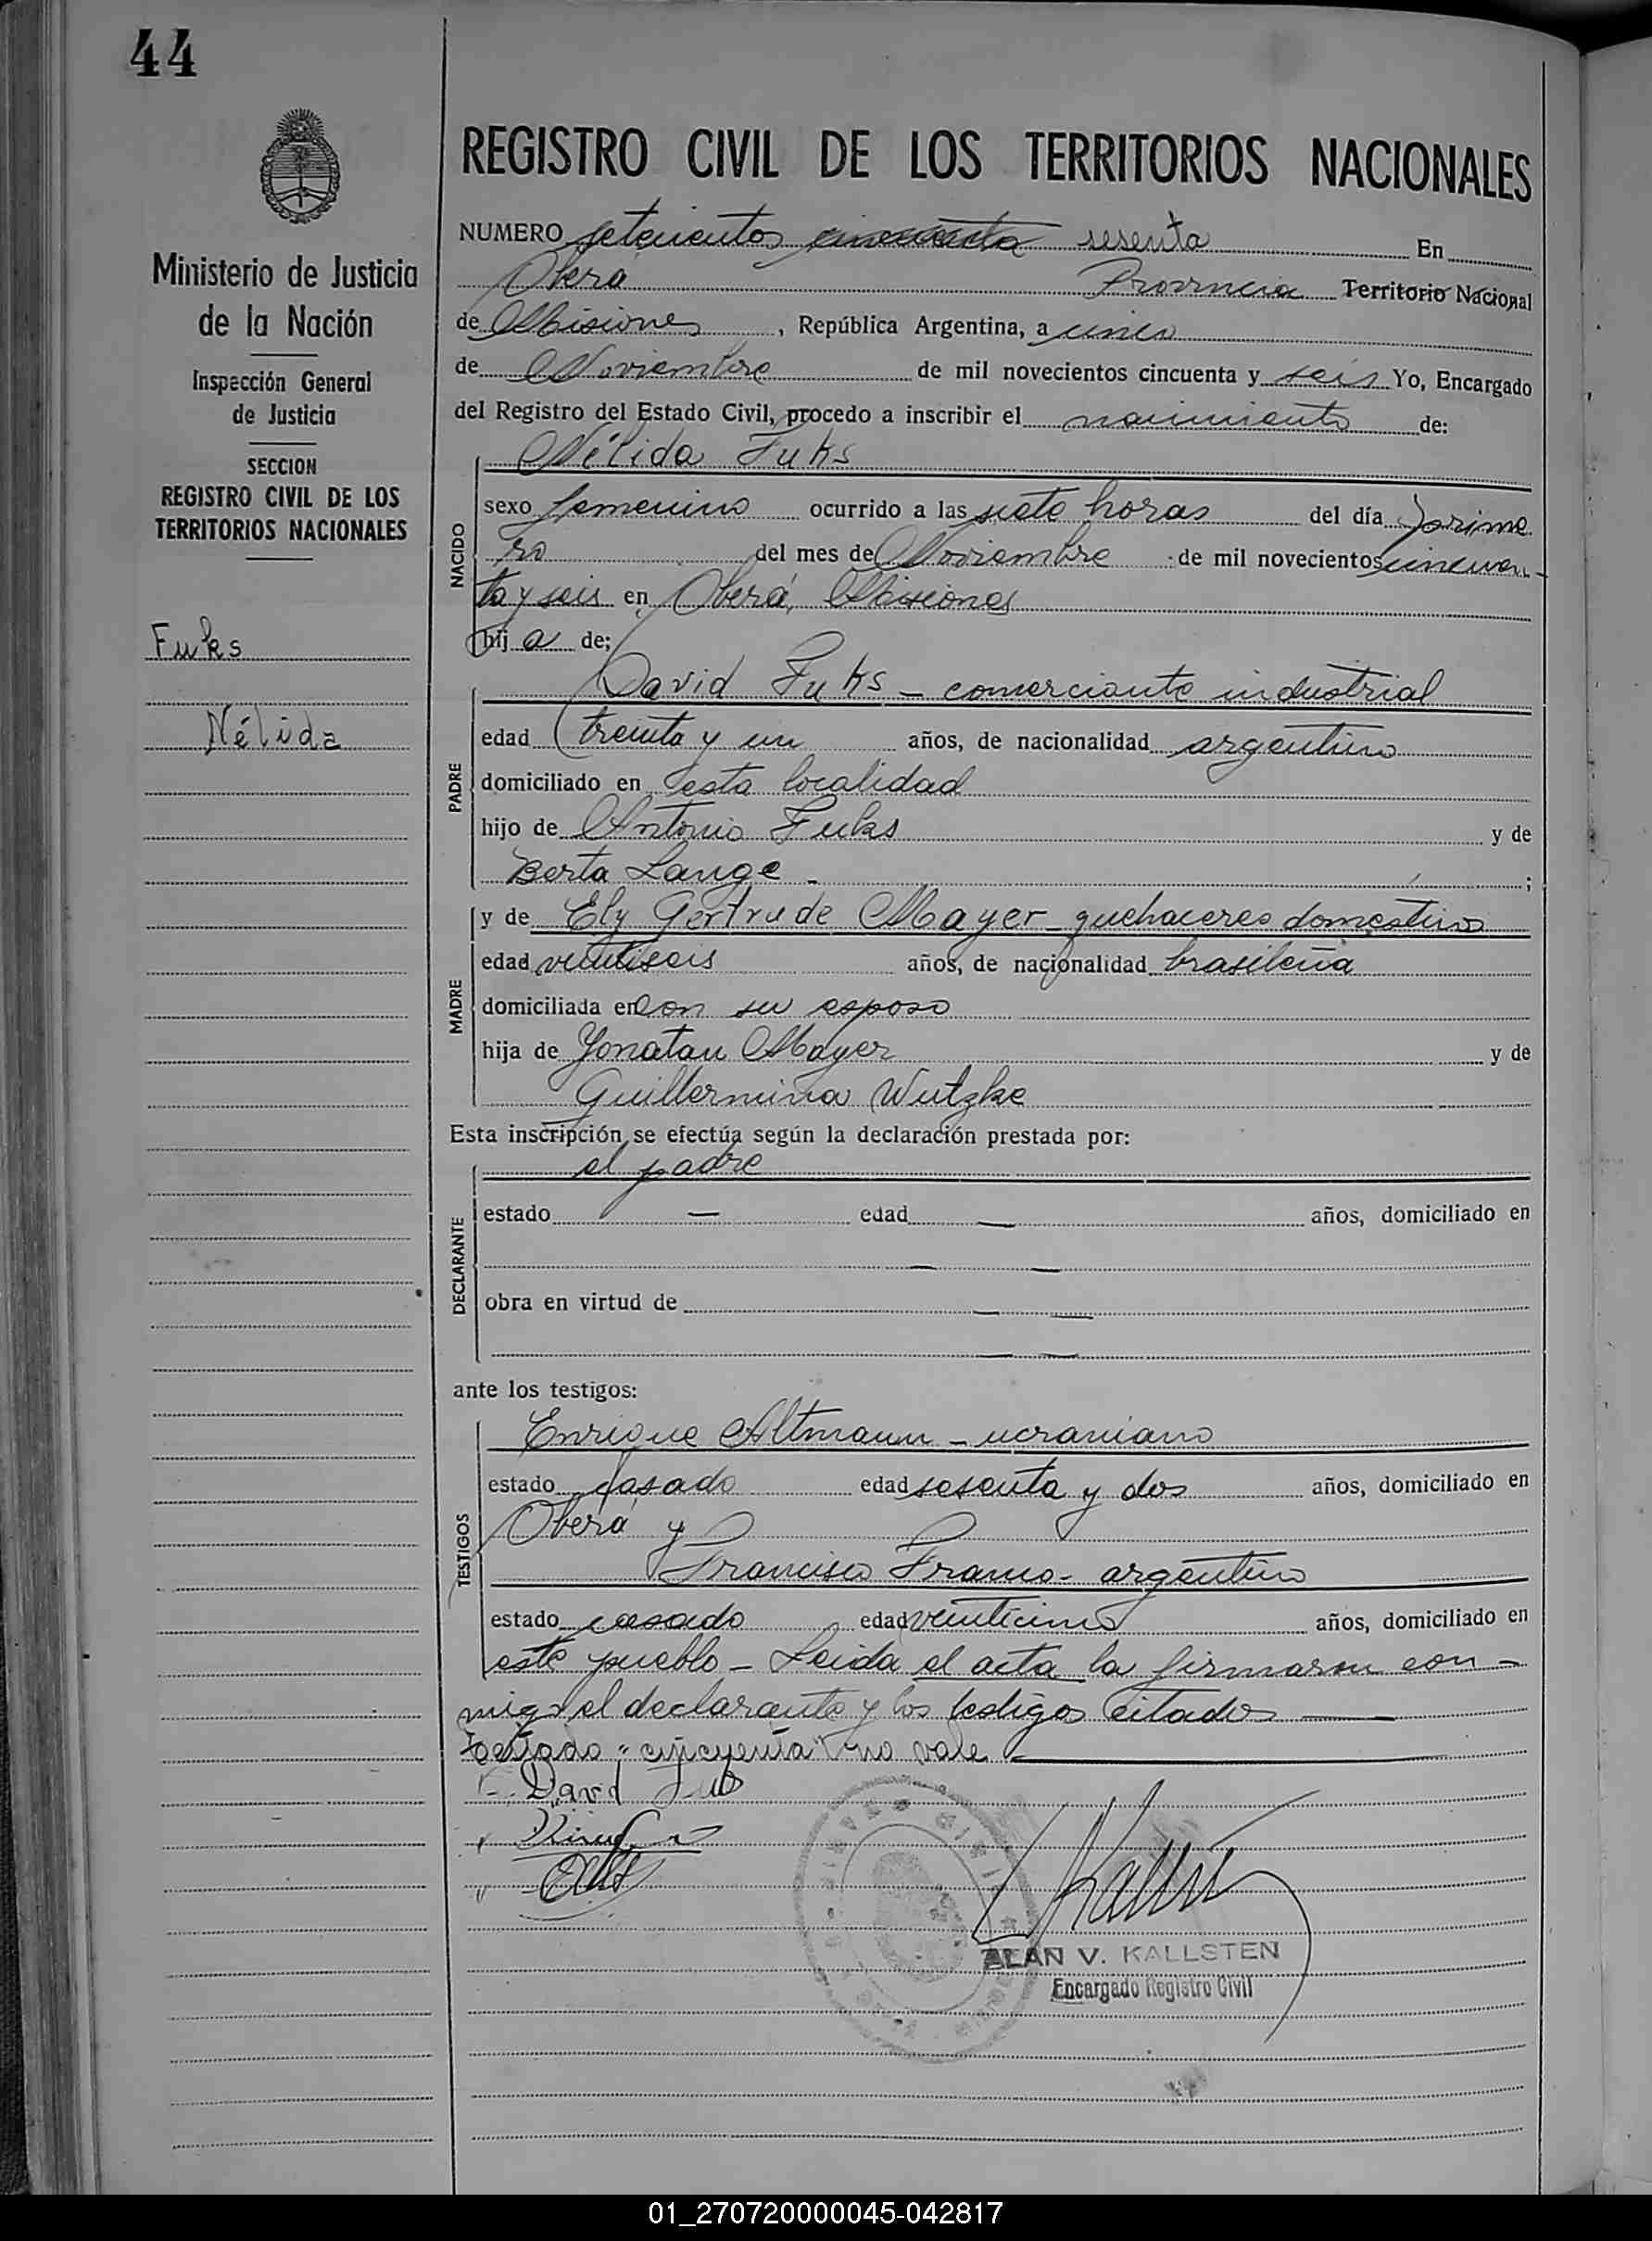 44
REGISTRO CIVIL DE LOS TERRITORIOS NACIONALES
Ministerio de Justicia
de la Nación
Inspección General
de Justicia
SECCION
REGISTRO CIVIL DE LOS
TERRITORIOS NACIONALES
Fuks
Nélida
NUMERO setecientos cincuenta sesenta En
Oberá Provincia Territorio Nacional
de Misiones, República Argentina, a cinco
de Noviembre de mil novecientos cincuenta y seis Yo, Encargado
del Registro del Estado Civil, procedo a inscribir el nacimiento de:
NACIDO
Nélida Fuks
sexo femenino ocurrido a las siete horas del día prime
ro del mes de Noviembre de mil novecientos cincuen-
ta y seis en Oberá, Misiones
hija de;
PADRE
David Fuks - comerciante industrial
edad treinta y un años, de nacionalidad argentino
domiciliado en esta localidad
hijo de Antonio Fuks y de
Berta Lange - ;
MADRE
y de Ely Gertrude Mayer - quehaceres domesticos
edad veintiseis años, de nacionalidad brasileña
domiciliada en con su esposo
hija de Jonatan Mayer y de
Guillermina Wutzke
Esta inscripción se efectúa según la declaración prestada por:
DECLARANTE
el padre
estado — edad — años, domiciliado en
— —
obra en virtud de — —
— —
ante los testigos:
TESTIGOS
Enrique Altmann - ucraniano
estado casado edad sesenta y dos años, domiciliado en
Oberá y
Francisco Franco - argentino
estado casado edad veinticinco años, domiciliado en
este pueblo - Leida el acta la firmaron con-
migo el declarante y los testigos citados —
Testado: "cincuenta" no vale —
David Fuks
ALAN V. KALLSTEN
Encargado Registro Civil
01_270720000045-042817